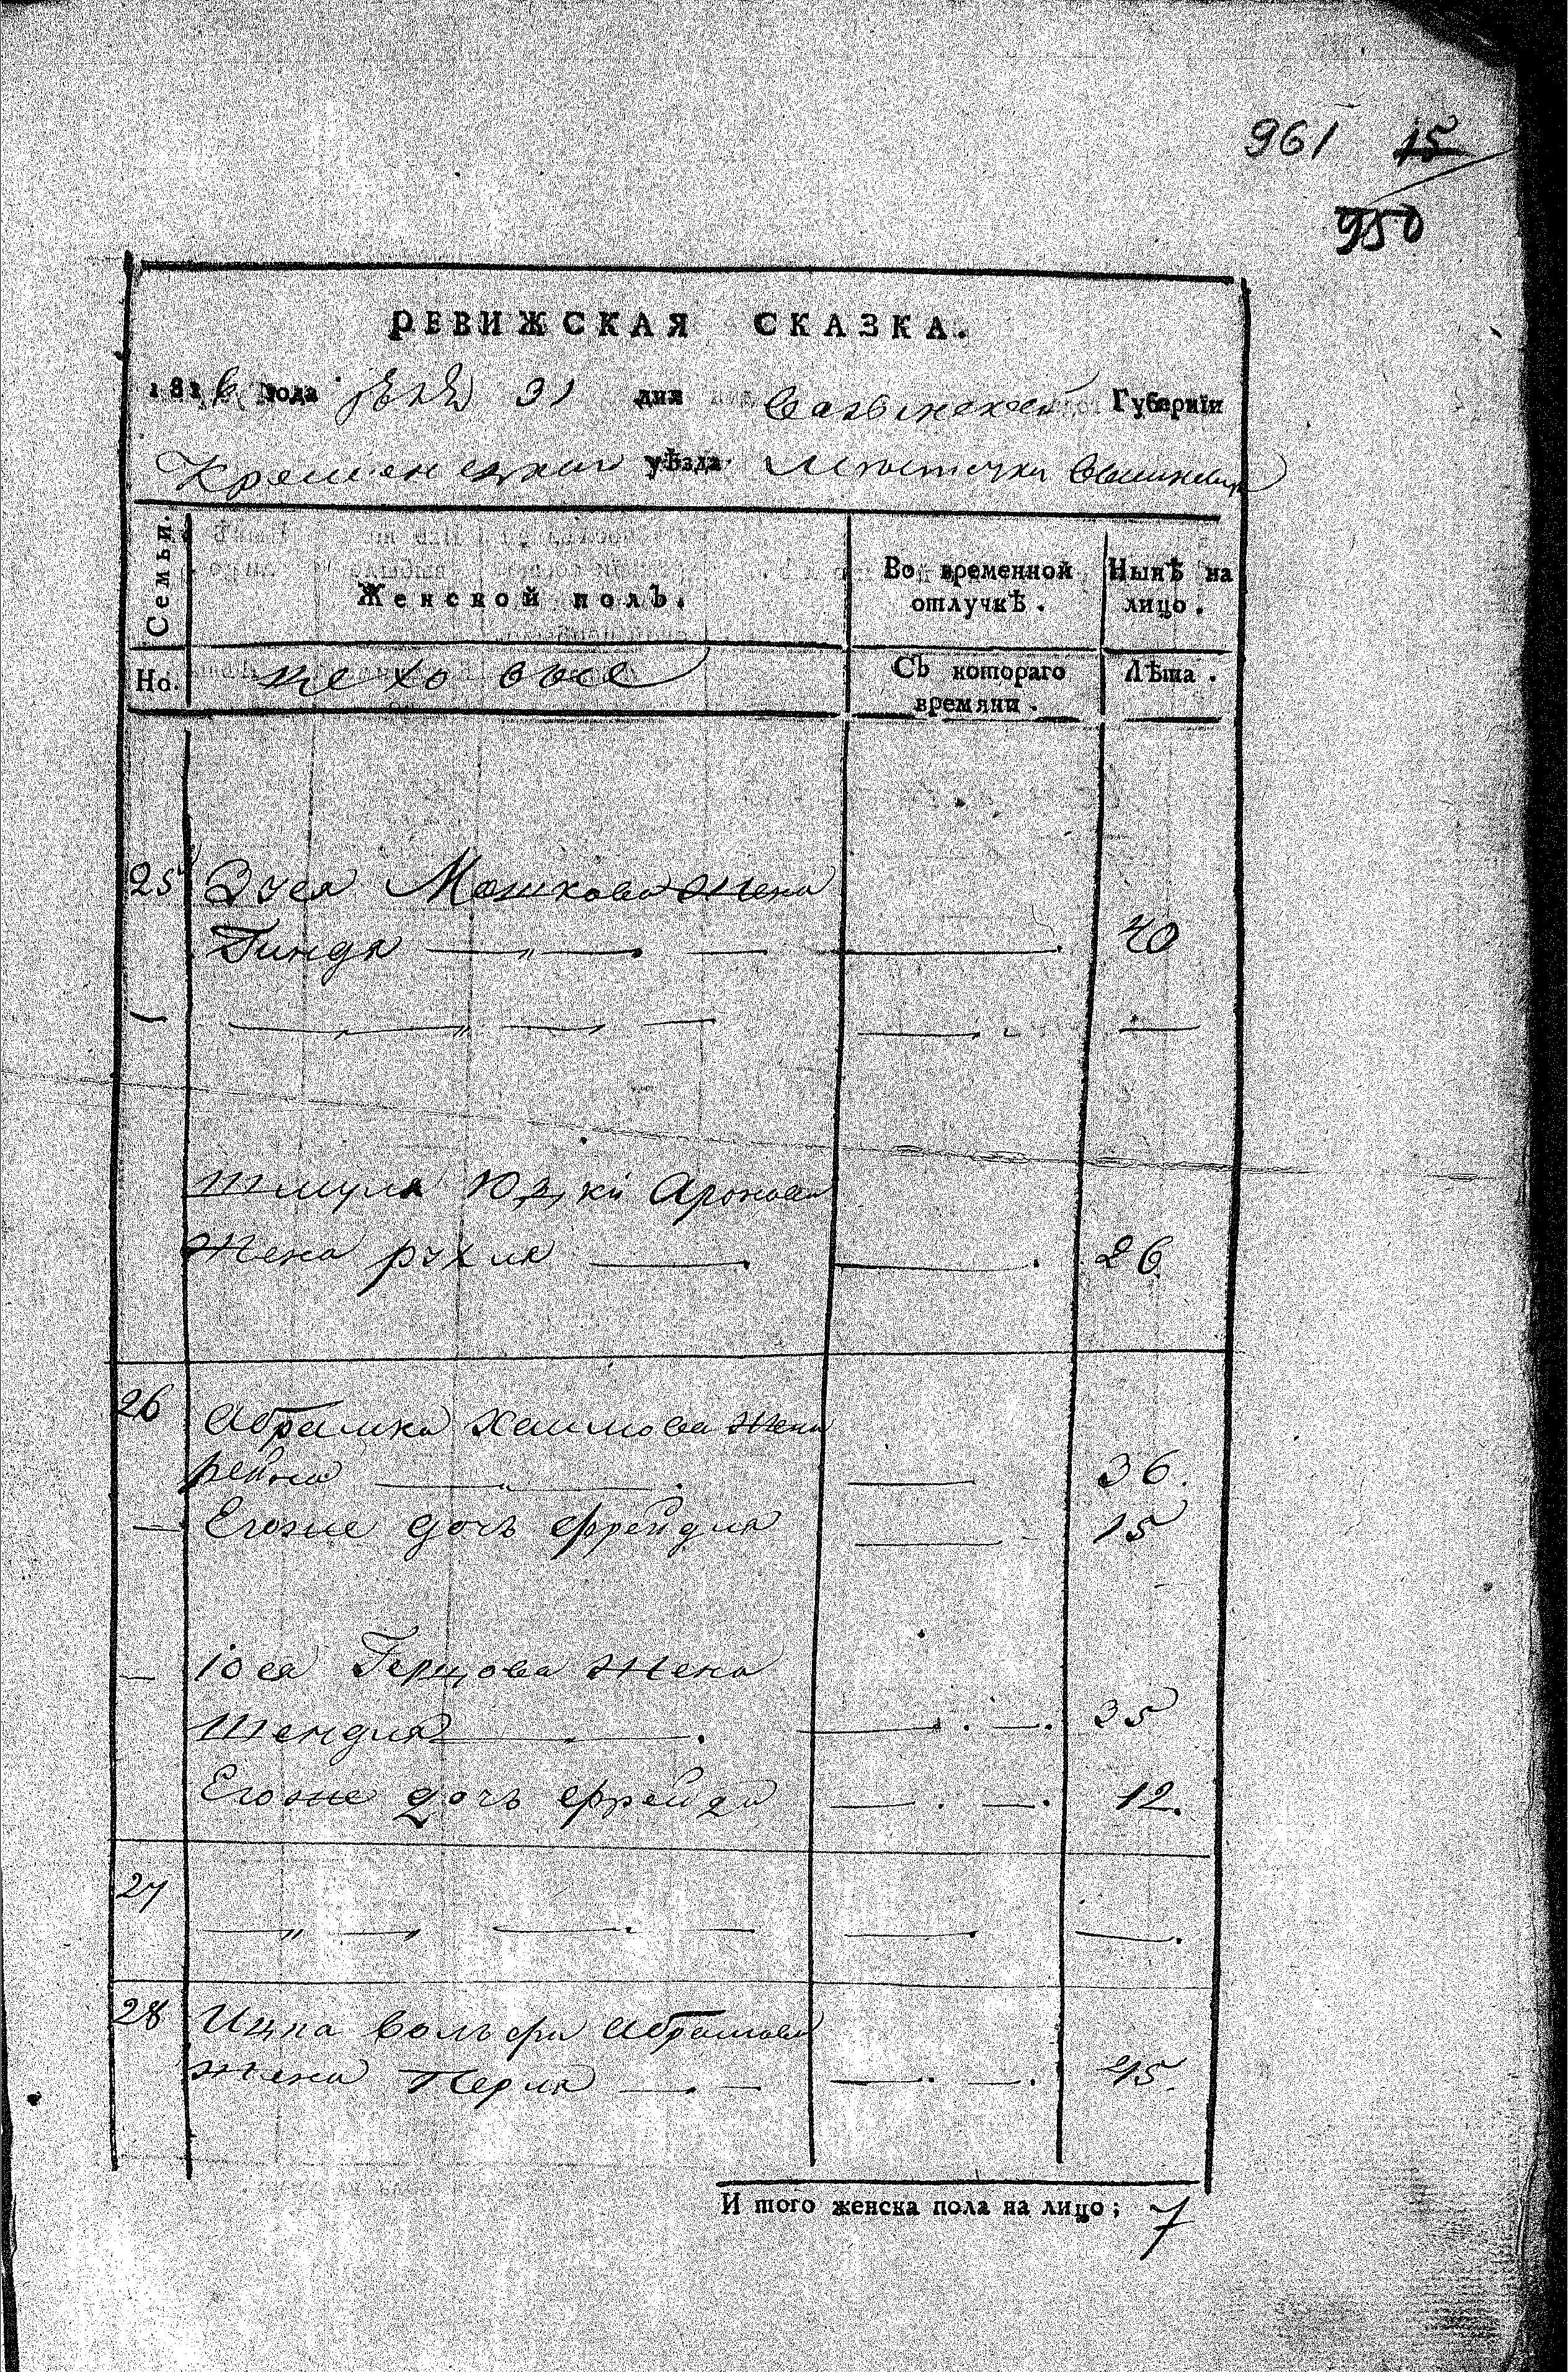 961 15
950
РЕВИЖСКАЯ СКАЗКА.
1816 года 31 дня Волынской Губернїи
Кременецкаго уѣзда Местечка Вышневца
Семьи. Женской полъ. Во временной отлучкѣ. Нынѣ на лицо.
Но. Съ котораго времяни. Лѣта.
25 Мошкова жена
Гинда 40
Шмуля Юдки Аронова
жена рухля 26
26 Абрамка Хаимова жена
36.
Егоже дочь фрейдля 15
Іося Герцова жена
Шендля 35
Егоже дочь фрейда 12.
27
28 Ицка Вольфа Абрамова
жена Перля 45.
И того женска пола на лицо; 7